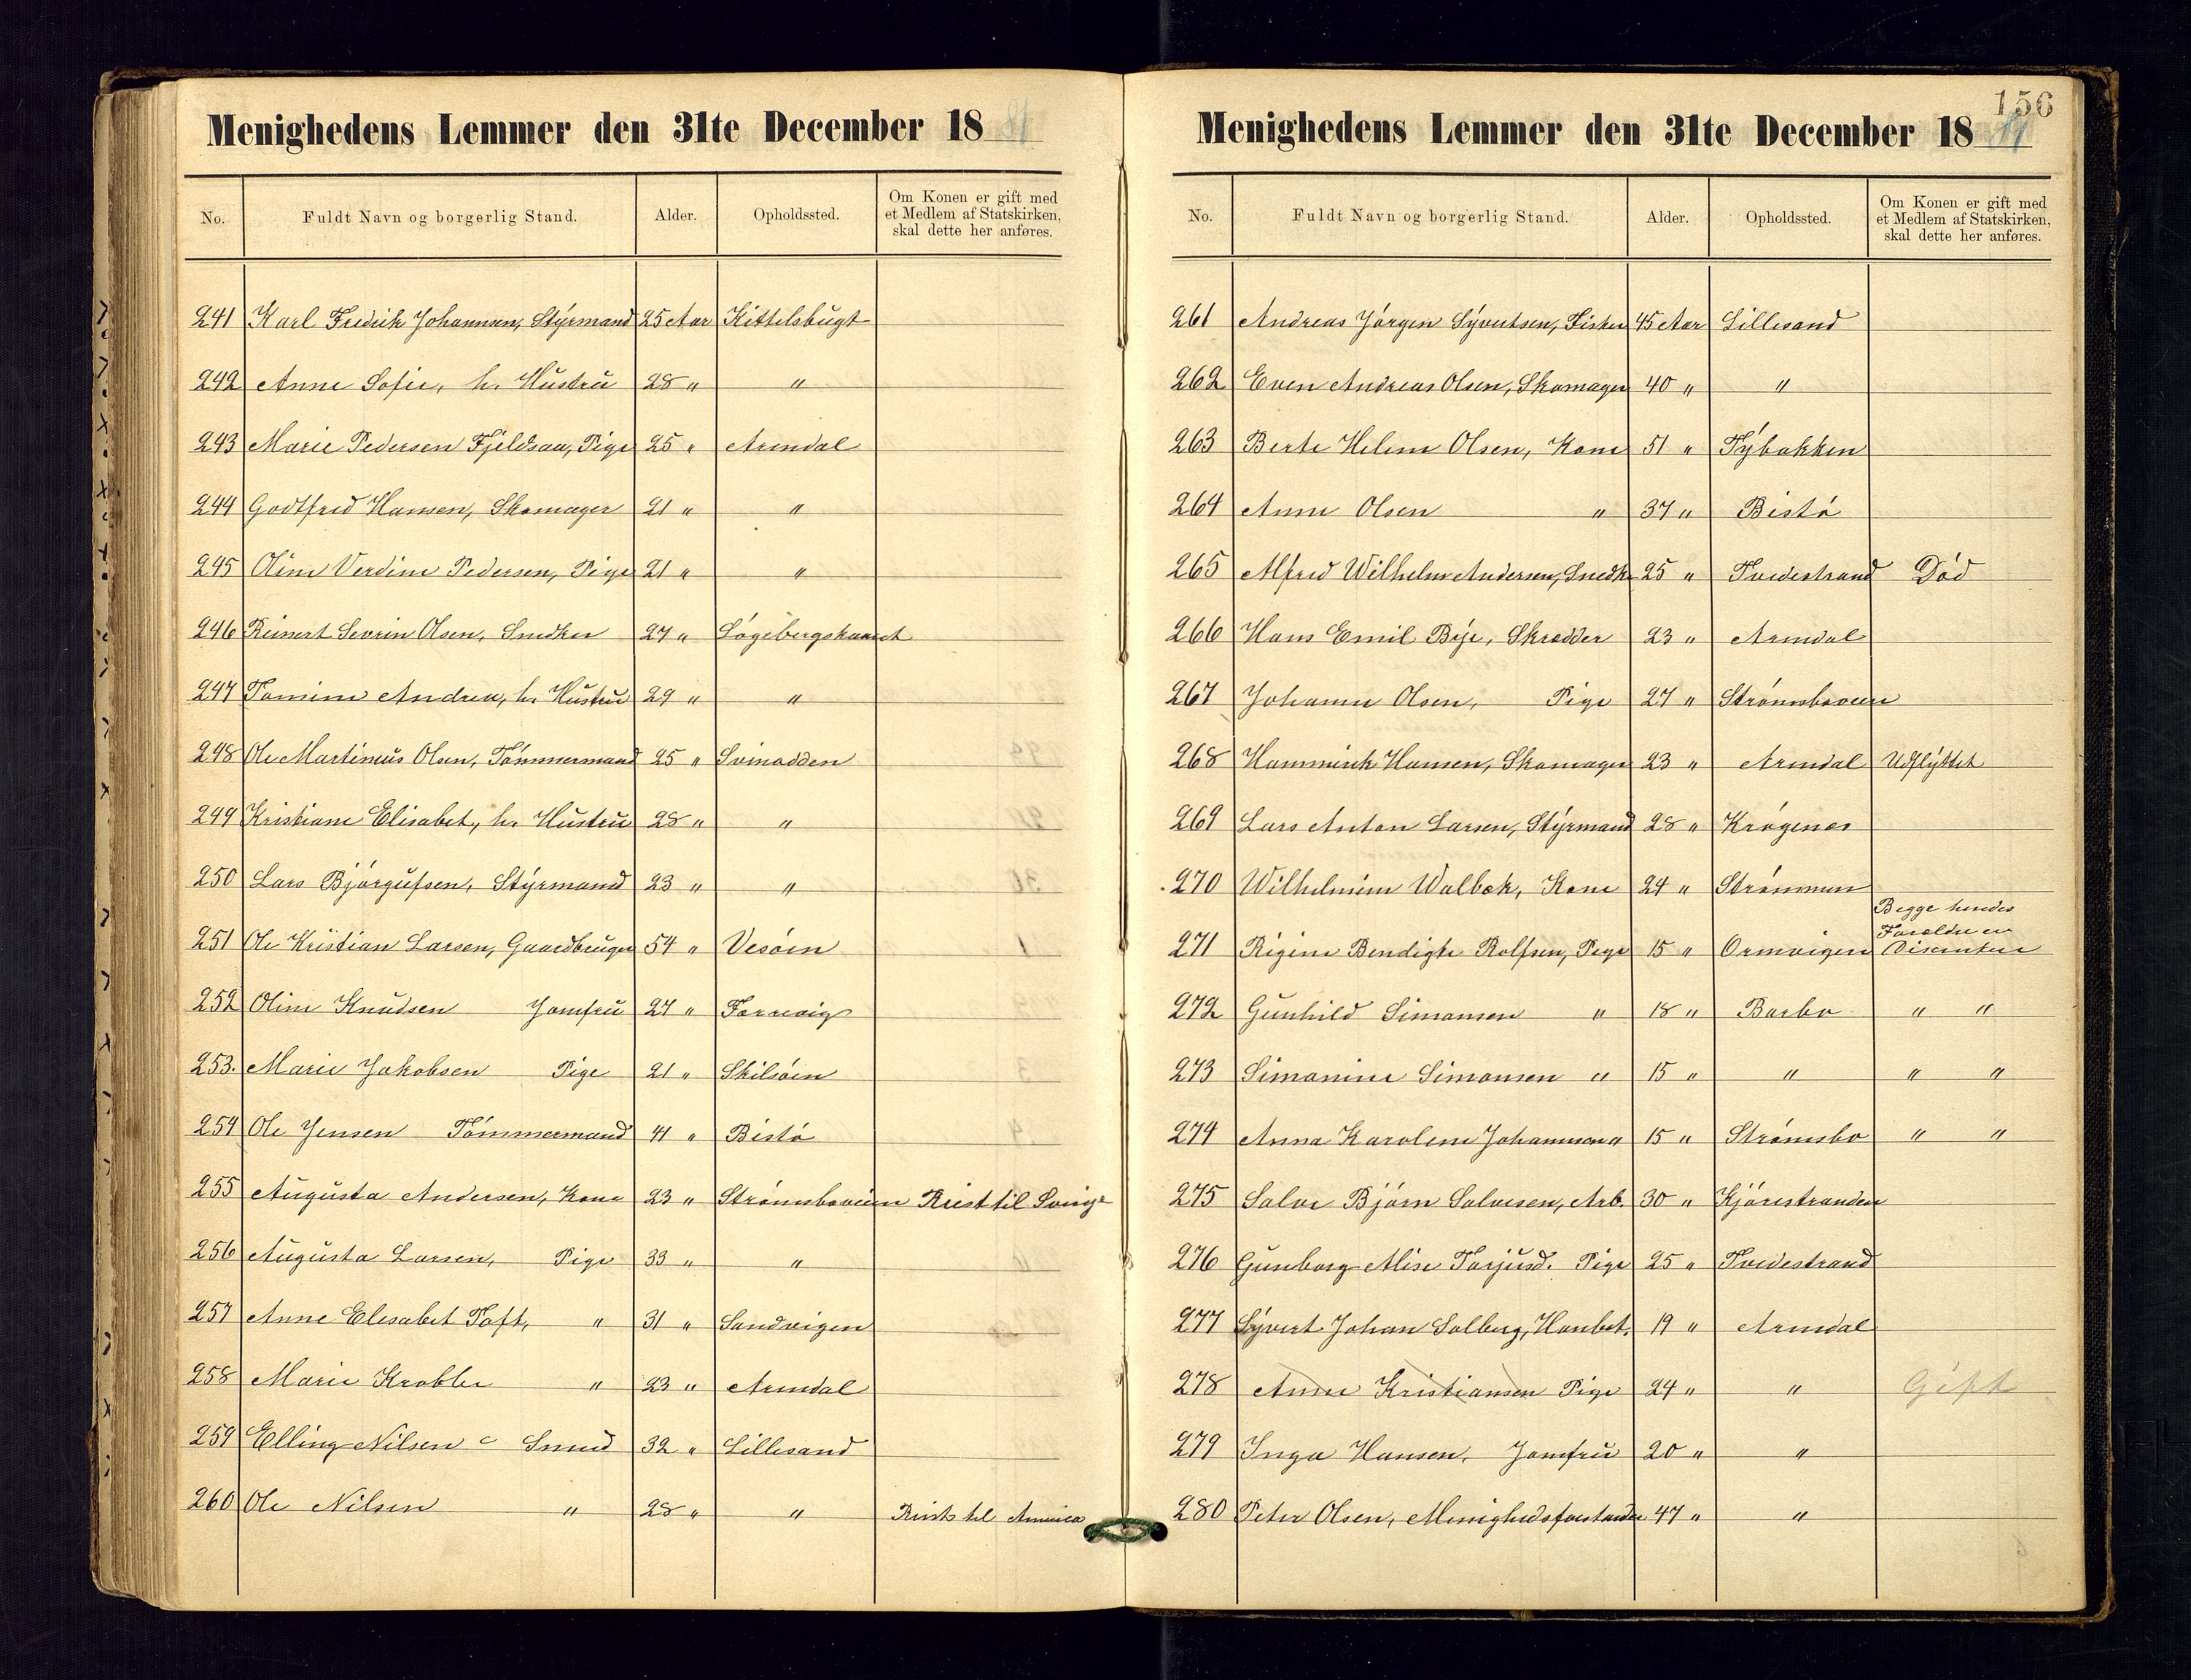 Menighedens Lemmer den 31te December 18
No. Fuldt Navn og borgerlig Stand. Alder. Opholdssted. Om Konen er gift med et Medlem af Statskirken, skal dette her anføres.
241 Karl Fredrik Johannsen, Stýrmand 25 Aar Kittelsbugt
242 Anne Sofie, h. Hustru 28 " "
243 Marie Pedersen Fjeldsaa, Pige 25 " Arendal
244 Godtfred Hansen, Skomager 21 " "
245 Oline Verdine Pedersen, Pige 21 " "
246 Reinert Sevrin Olsen, Snedker 27 "
247 Tomine Andrea, h. Hustru 29 " "
248 Ole Martinius Olsen, Tömmermand 25 " Svinodden
249 Kristiane Elisabet, h. Hustru 28 " "
250 Lars Bjørgufsen, Stýrmand 23 " "
251 Ole Kristian Larsen, Gaardbruger 54 " Vesöen
252 Oline Knudsen Jomfru 27 "
253. Marie Jakobsen Pige 21 " Skilsöen
254 Ole Jensen Tömmermand 41 " Bistö
255 Augusta Andersen, Kone 23 " Strömsboveien Reist til Sverige
256 Augusta Larsen, Pige 33 " "
257 Anne Elesabet Toft, " 31 " Sandvigen
258 Marie Krobler " 23 " Arendal
259 Elling Nilsen Smed 32 " Lillesand
260 Ole Nilsen " 28 " " Reist til America
156
Menighedens Lemmer den 31te December 18
No. Fuldt Navn og borgerlig Stand. Alder. Opholdssted. Om Konen er gift med et Medlem af Statskirken, skal dette her anføres.
261 Andreas Jörgen Sývertsen, Fisker 45 Aar Lillesand
262 Even Andreas Olsen, Skomager 40 " "
263 Berte Helene Olsen, Kone 51 " Týbakken
264 Anne Olsen " 37 " Bistö
265 Alfred Wilhelm Andersen, Snedk 25 " Tvedestrand Död
266 Hans Emil Býe, Skrædder 23 " Arendal
267 Johanne Olsen, Pige 27 " Strömsboveien
268 Hansen, Skomager 23 " Arendal Udflýttet
269 Lars Anton Larsen, Stýrmand 28 " Krögenes
270 Wilhelmine Walbæk, Kone 24 " Strömmen
271 Rigine Bendigte Rolfsen, Pige 15 " Ormvigen Begge hendes Forældre er Disenter
272 Gunhild Simonsen " 18 " Barbo " "
273 Simonine Simonsen " 15 " " " "
274 Anna Karoline Johannsen " 15 " Strömsbo " "
275 Salve Björn Salvesen, Arb. 30 " Kjörrestranden
276 Gunborg Alise Torjusd. Pige 25 " Tvedestrand
277 Sývert Johan Solberg, Hanbet. 19 " Arendal
278 Anne Kristiansen Pige 24 " " Gift
279 Inga Hansen, Jomfru 20 " "
280 Peter Olsen, Menighedsforstander 47 " "